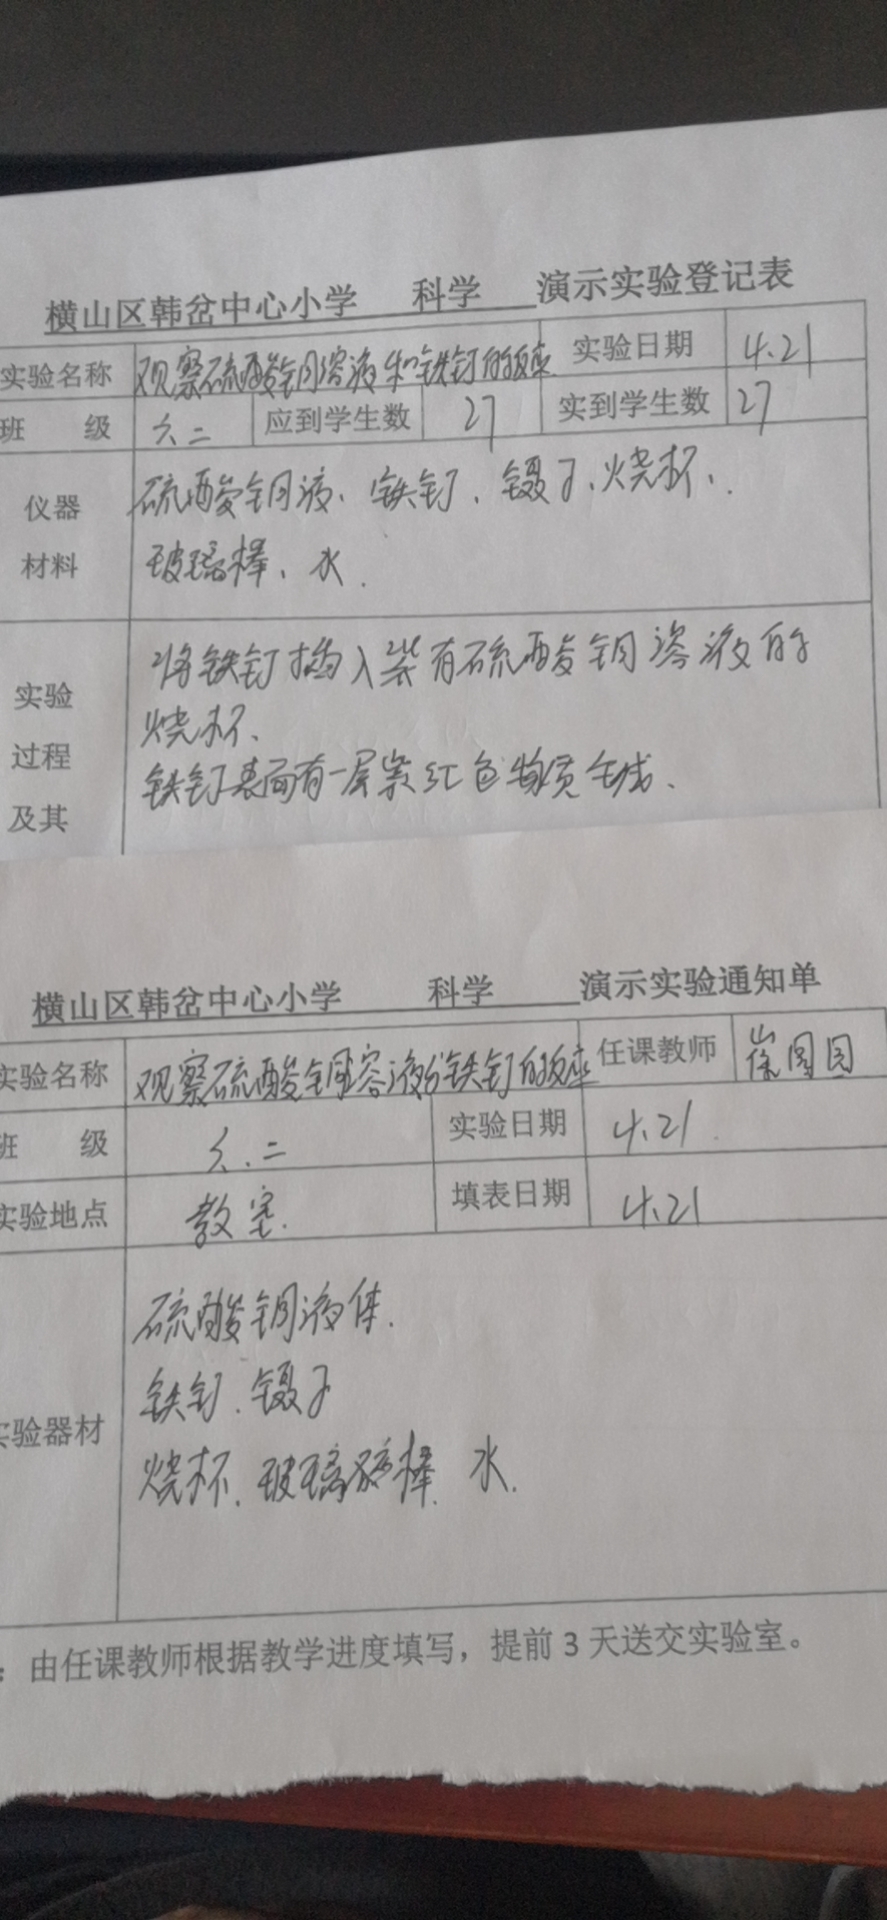 横山区韩岔中心小学 科学 演示实验登记表
实验名称 观察硫酸铜溶液和铁钉的反应 实验日期 4.21
班 级 六二 应到学生数 27 实到学生数 27
仪器 硫酸铜液、铁钉、镊子、烧杯、
材料 玻璃棒、水.
将铁钉插入装有硫酸铜溶液的
实验
烧杯.
过程
铁钉表面有一层紫红色物质生成、
及其
横山区韩岔中心小学 科学 演示实验通知单
实验名称 观察硫酸铜溶液与铁钉的反应 任课教师
班 级 六.二 实验日期 4.21.
实验地点 教室. 填表日期 4.21
硫酸铜液体.
铁钉.镊子
实验器材
烧杯.玻璃棒.水.
：由任课教师根据教学进度填写，提前 3 天送交实验室。